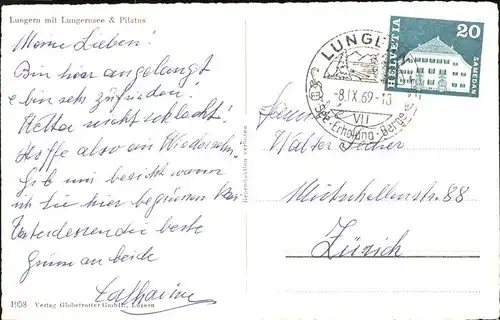 Lungern mit Lungernsee & Pilatus
Meine Lieben!
Bin hier angelangt
& bin sehr zufrieden.
Wetter nicht schlecht!
Hoffe also auf Wiedersehn.
Gib mir bericht wann
ich Sie hier begrüssen kann
Unterdessen die beste
Grüsse an beide
Catharine
1958 Verlag Globetrotter GmbH., Luzern
Reproduktion verboten
LUNGERN
-8.IX.69-13
VII
See-Erholung-Berge
HELVETIA
20
SAMEDAN
Familie
Walter
Mutschellenstr. 88
Zürich